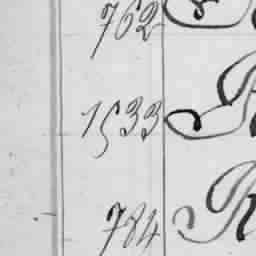 762
1533
784